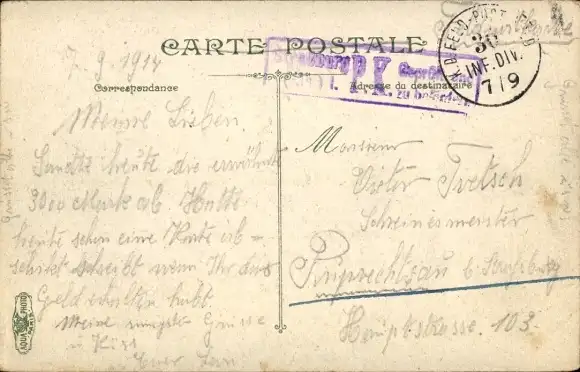 7. 9. 1914
CARTE POSTALE
K.D. FELD-POST
30
INF. DIV.
7/9
Strassburg
P.K.
zu befördern
Correspondance
Adresse du destinataire
Meine Lieben
Sandte heute die erwähnte
3000 Mark ab. Hatte
heute schon eine Karte ab-
schickt schreibt wenn Ihr das
Geld erhalten habt.
Meine innigsten Grüsse
u Küss
Euer
Monsieur
Victor Tretsch
Schreinermeister
Ruprechtsau b. Straßburg
Hauptstrasse. 103.
AQUA PHOTO
PARIS